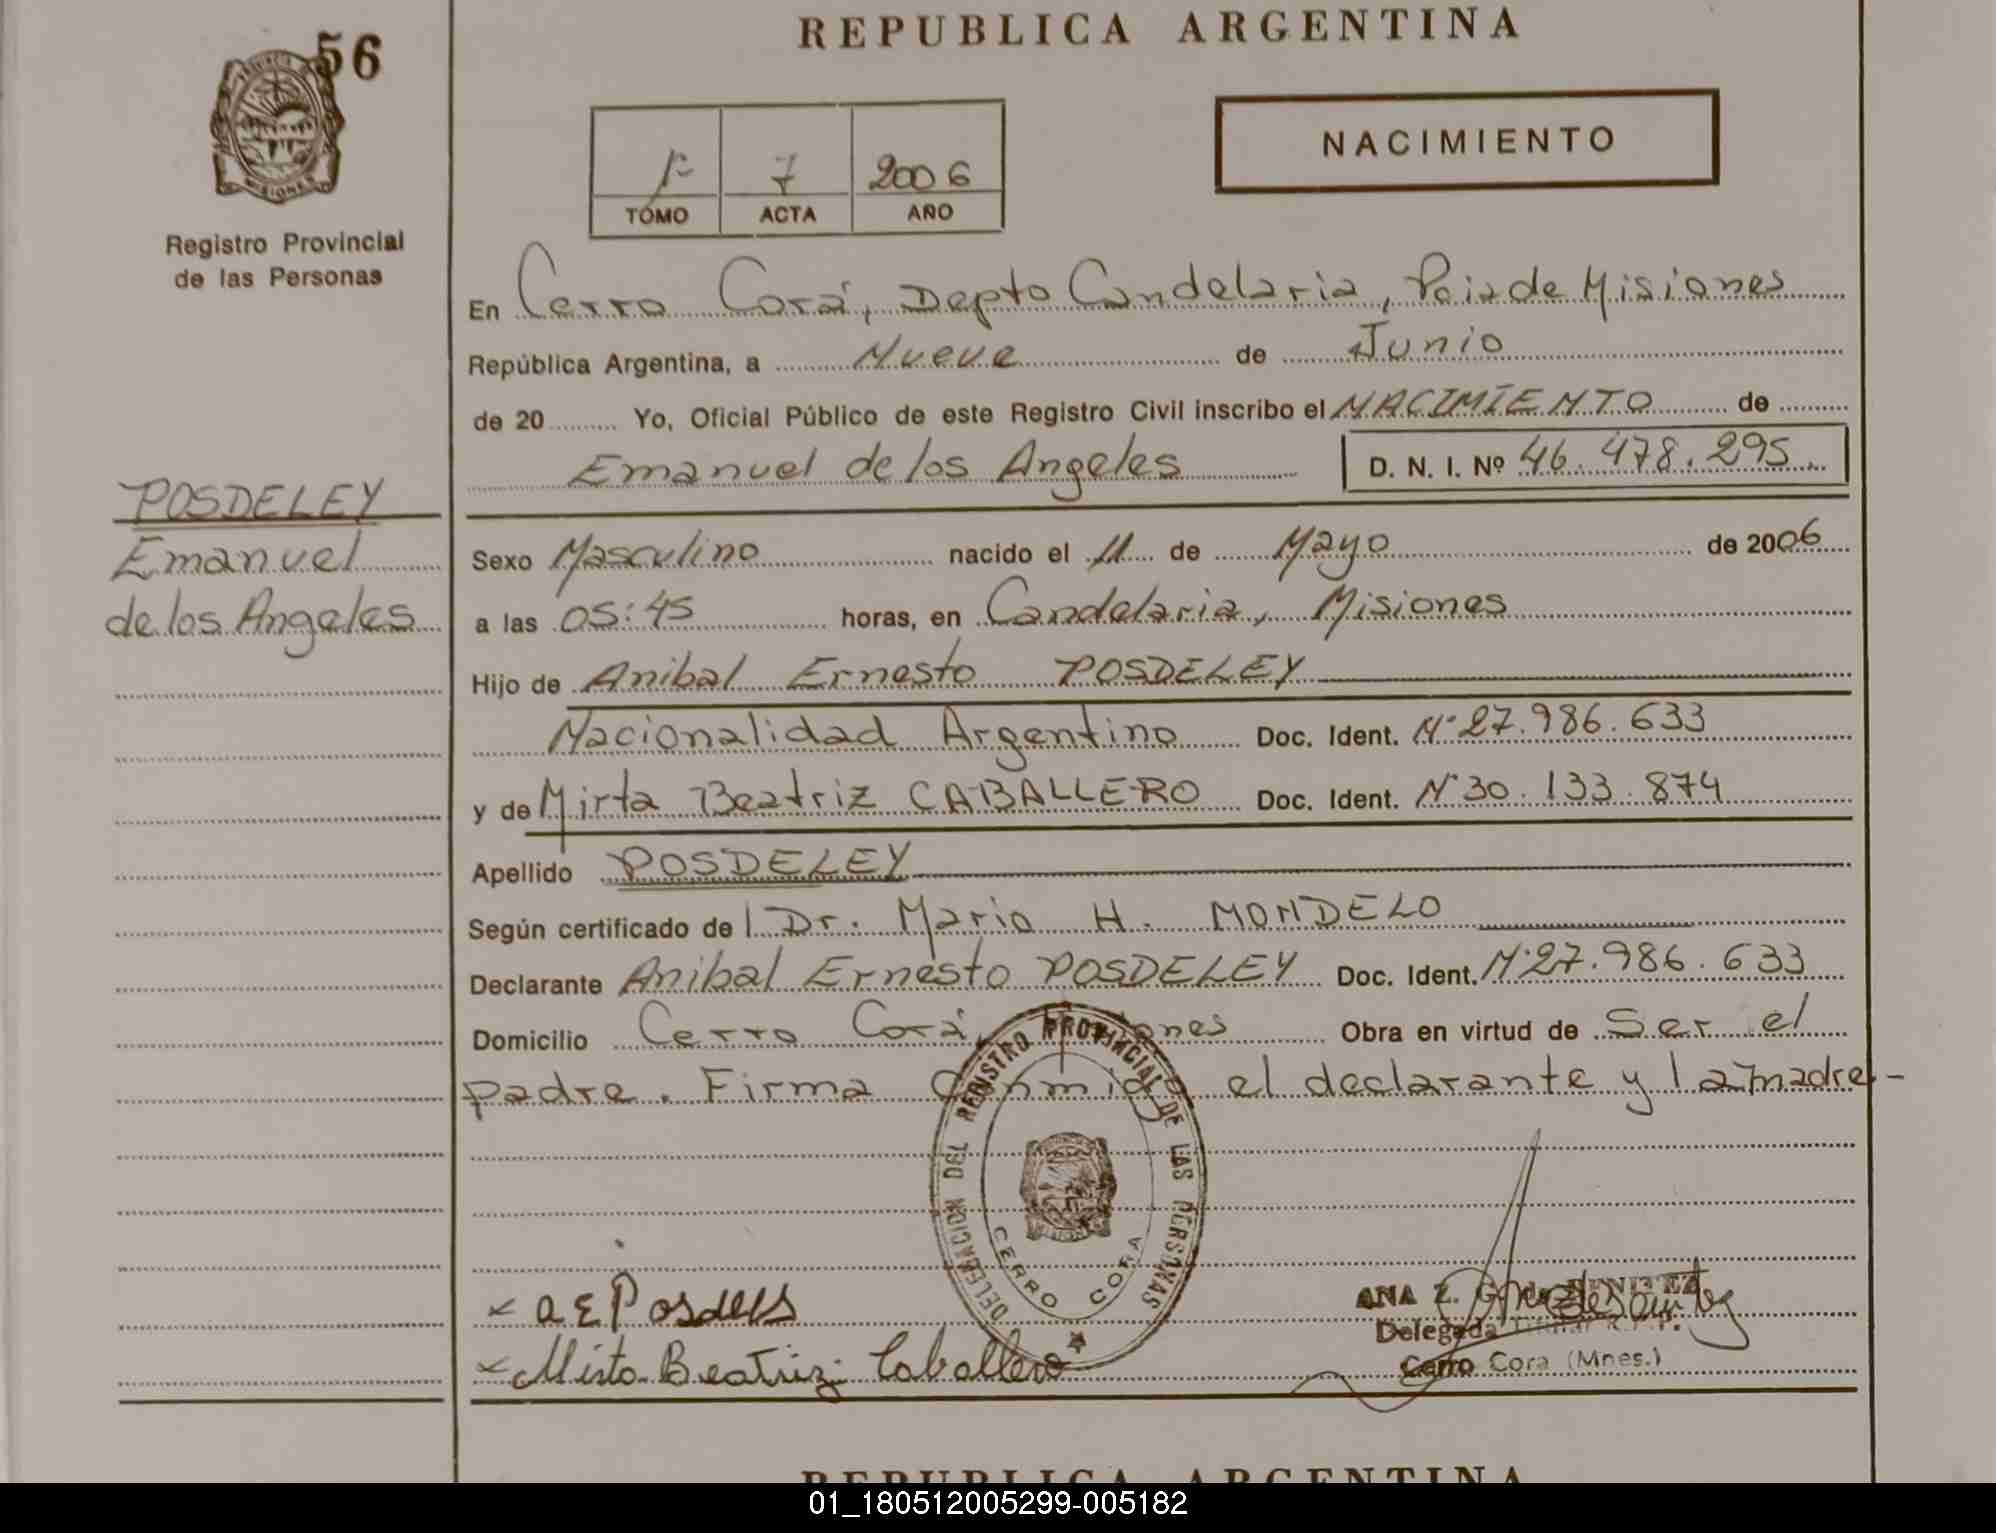 56
REPUBLICA ARGENTINA
NACIMIENTO
1º 7 2006
TOMO ACTA AÑO
MISIONES
Registro Provincial
de las Personas
En Cerro Corá, Depto Candelaria, Pcia de Misiones
República Argentina, a Nueve de Junio
de 20 Yo, Oficial Público de este Registro Civil inscribo el NACIMIENTO de
Emanuel de los Angeles D. N. I. Nº 46.478.295.
POSDELEY
Emanuel
de los Angeles
Sexo Masculino nacido el 11 de Mayo de 2006
a las 05:45 horas, en Candelaria, Misiones
Hijo de Anibal Ernesto POSDELEY
Nacionalidad Argentino Doc. Ident. Nº 27.986.633
y de Mirta Beatriz CABALLERO Doc. Ident. Nº 30.133.874
Apellido POSDELEY
Según certificado de l Dr. Mario H. MONDELO
Declarante Anibal Ernesto POSDELEY Doc. Ident. Nº 27.986.633
Domicilio Cerro Corá, Misiones Obra en virtud de Ser el
padre. Firma Conmigo el declarante y la madre.-
DELEGACION DEL REGISTRO PROVINCIAL DE LAS PERSONAS
CERRO CORA
x a E Posdeley
x Mirta Beatriz Caballero
ANA Z. BENITEZ
Delegada Titular R.P.P.
Cerro Cora (Mnes.)
REPUBLICA ARGENTINA
01_180512005299-005182